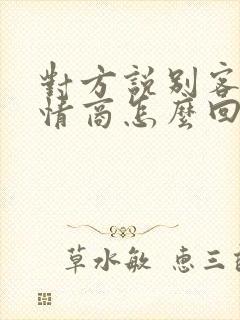 對方説别客
情商怎麼回
草水敏 惠三